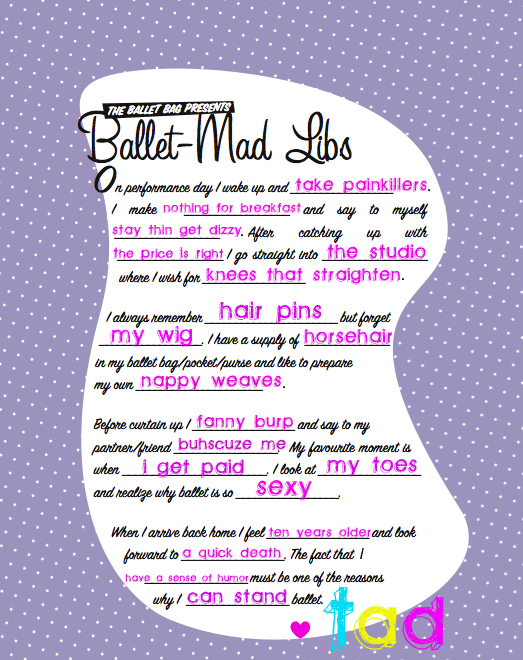 THE BALLET BAG PRESENTS
Ballet-Mad Libs
On performance day I wake up and take painkillers.
I make nothing for breakfast and say to myself
stay thin get dizzy. After catching up with
the price is right I go straight into the studio
where I wish for knees that straighten.
I always remember hair pins but forget
my wig. I have a supply of horsehair
in my ballet bag/pocket/purse and like to prepare
my own nappy weaves.
Before curtain up I fanny burp and say to my
partner/friend buhscuze me. My favourite moment is
when i get paid. I look at my toes
and realize why ballet is so sexy.
When I arrive back home I feel ten years older and look
forward to a quick death. The fact that I
have a sense of humor must be one of the reasons
why I can stand ballet.
tad